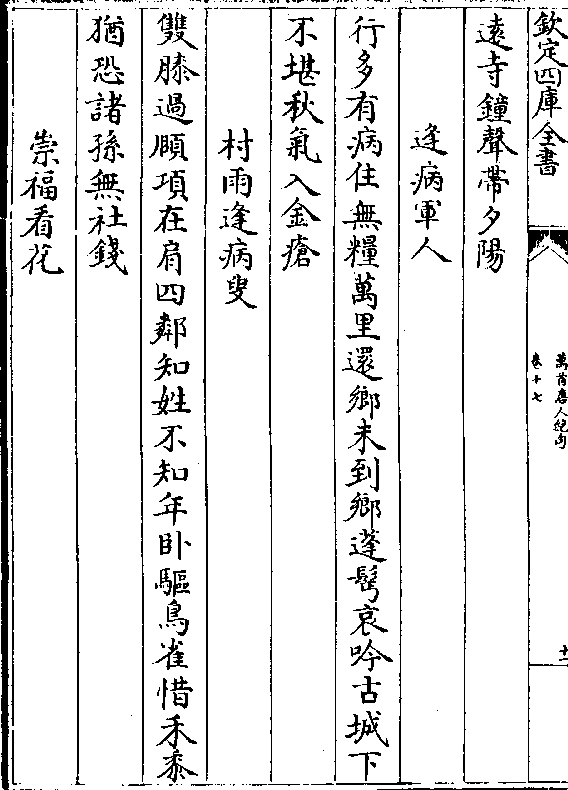 欽定四庫全書
萬首唐人絶句
卷十七
十一
遠寺鐘聲帶夕陽
逢病軍人
行多有病住無糧萬里還鄉未到鄉蓬鬢哀吟古城下
不堪秋氣入金瘡
村雨逢病叟
雙膝過頤項在肩四鄰知姓不知年卧驅鳥雀惜禾黍
猶恐諸孫無社錢
崇福看花